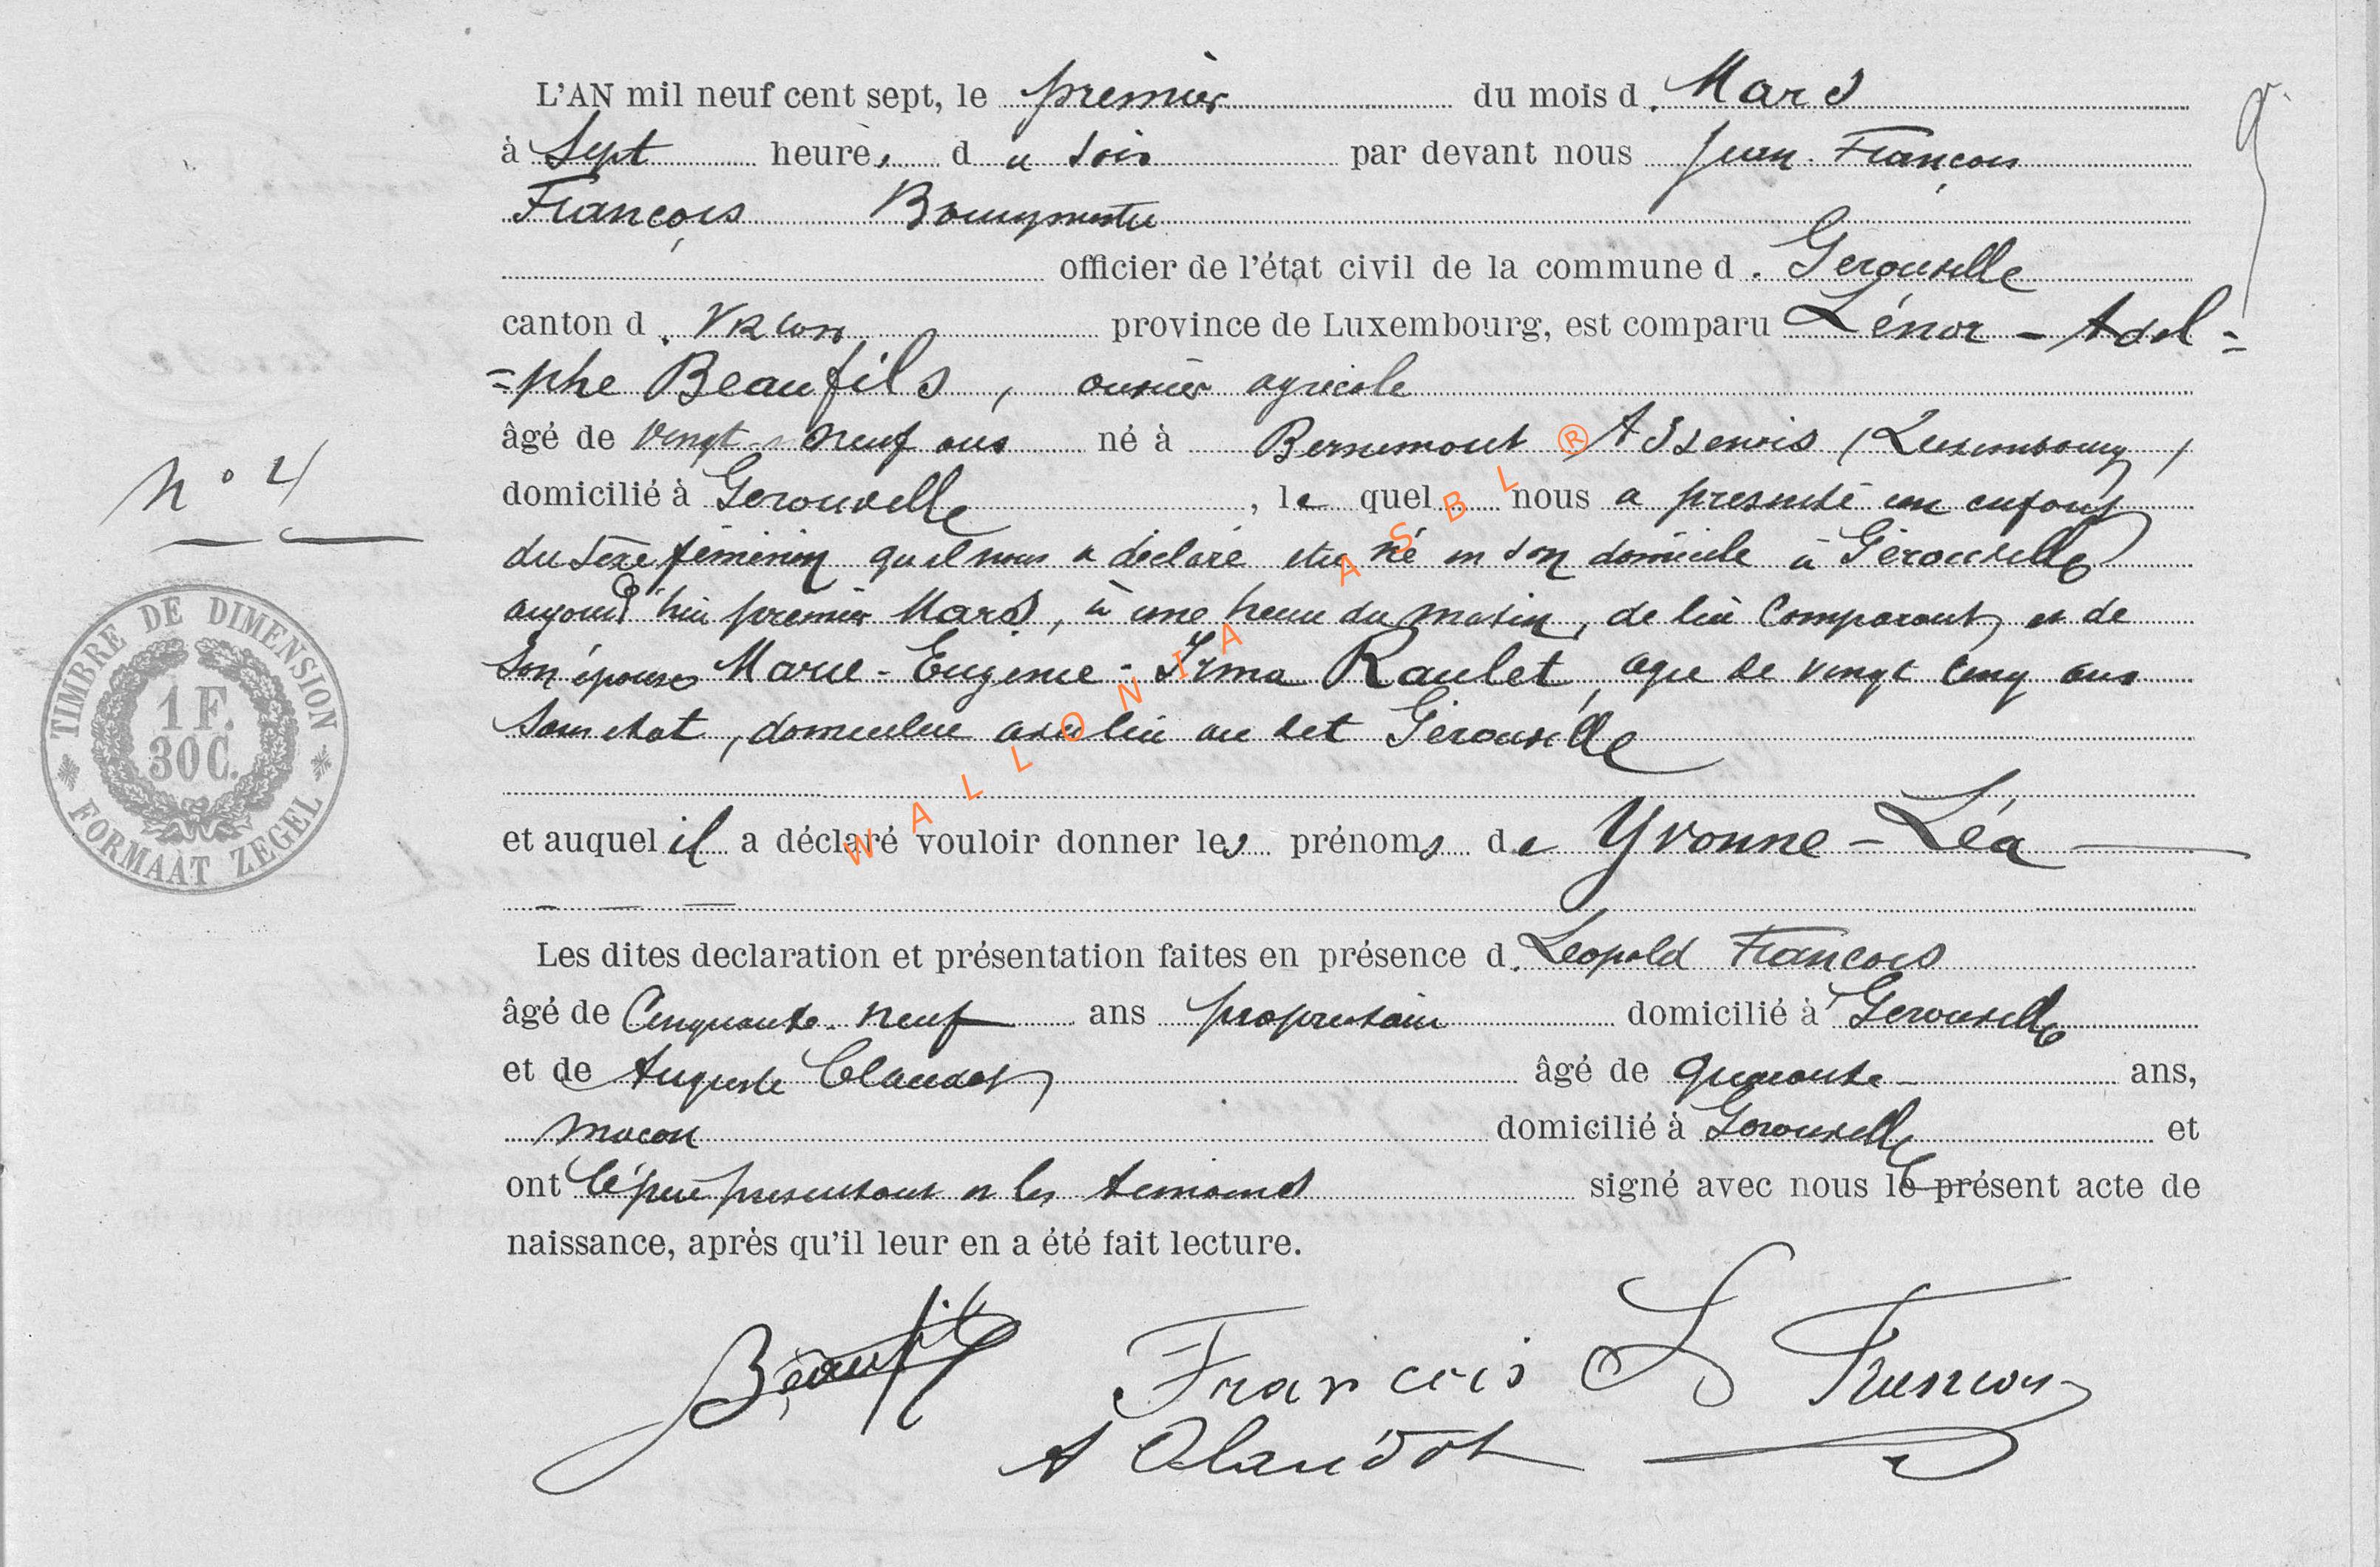 L'AN mil neuf cent sept, le premier du mois d. Mars
à Sept heure, d u soir par devant nous Jean François
François Bourgmestre
officier de l'état civil de la commune d. Gerouville
canton d. Virton province de Luxembourg, est comparu Lénor - Adol=
=phe Beaufils, ouvrier agricole
âgé de vingt-neuf ans né à Bernimont Assenois (Luxembourg)
domicilié à Gerouville, le quel nous a presenté un enfant
du sexe féminin qu'il nous a déclaré etre né en son domicile à Gérouville
aujourd'hui premier Mars, à une heure du matin, de lui Comparant et de
son épouse Marie-Eugenie-Irma Raulet, agee de vingt cinq ans
sans etat, domiciliee avec lui au dit Gérouville
et auquel il a déclaré vouloir donner les prénoms de Yvonne-Léa
Les dites declaration et présentation faites en présence d. Leopold Francois
âgé de Cinquante-neuf ans proprietaire domicilié à Gerouville
et de Auguste Claudot âgé de quarante ans,
macon domicilié à Gerouville et
ont le père presentant et les temoins signé avec nous le présent acte de
naissance, après qu'il leur en a été fait lecture.
Beaufils François L François
A Claudot
n° 4
TIMBRE DE DIMENSION
1 F.
30 C.
FORMAAT ZEGEL
WALLONIA ASBL ®